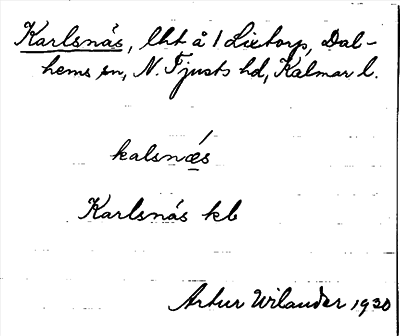 Karlsnäs, lht å 1 Lixtorp, Dal-
hems sn, N. Tjusts hd, Kalmar l.
kalsnǽs
Karlsnäs kb
Artur Wilander 1930